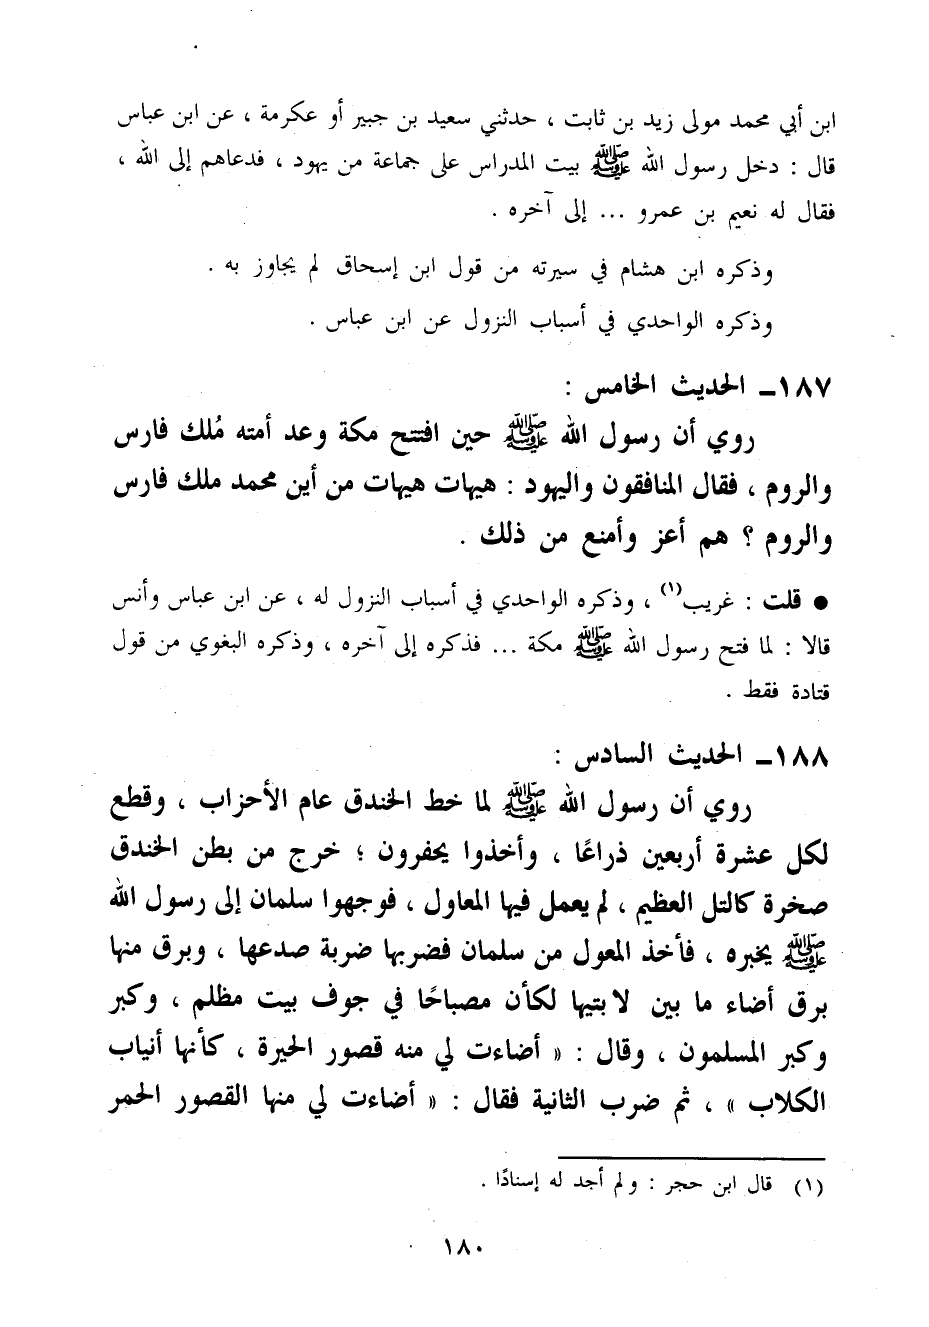 ابن أبي محمد مولى زيد بن ثابت ، حدثني سعيد بن جبير أو عكرمة ، عن ابن عباس
قال : دخل رسول الله ﷺ بيت المدراس على جماعة من يهود ، فدعاهم إلى الله ،
فقال له نعيم بن عمرو ... إلى آخره .
وذكره ابن هشام في سيرته من قول ابن إسحاق لم يجاوز به .
وذكره الواحدي في أسباب النزول عن ابن عباس .
١٨٧ـ الحديث الخامس :
روي أن رسول الله ﷺ حين افتتح مكة وعد أمته مُلك فارس
والروم ، فقال المنافقون واليهود : هيهات هيهات من أين محمد ملك فارس
والروم ؟ هم أعز وأمنع من ذلك .
● قلت : غريب(١) ، وذكره الواحدي في أسباب النزول له ، عن ابن عباس وأنس
قالا : لما فتح رسول الله ﷺ مكة ... فذكره إلى آخره ، وذكره البغوي من قول
قتادة فقط .
١٨٨ـ الحديث السادس :
روي أن رسول الله ﷺ لما خط الخندق عام الأحزاب ، وقطع
لكل عشرة أربعين ذراعًا ، وأخذوا يحفرون ؛ خرج من بطن الخندق
صخرة كالتل العظيم ، لم يعمل فيها المعاول ، فوجهوا سلمان إلى رسول الله
ﷺ يخبره ، فأخذ المعول من سلمان فضربها ضربة صدعها ، وبرق منها
برق أضاء ما بين لابتيها لكأن مصباحًا في جوف بيت مظلم ، وكبر
وكبر المسلمون ، وقال : « أضاءت لي منه قصور الحيرة ، كأنها أنياب
الكلاب » ، ثم ضرب الثانية فقال : « أضاءت لي منها القصور الحمر
(١) قال ابن حجر : ولم أجد له إسنادًا .
١٨٠